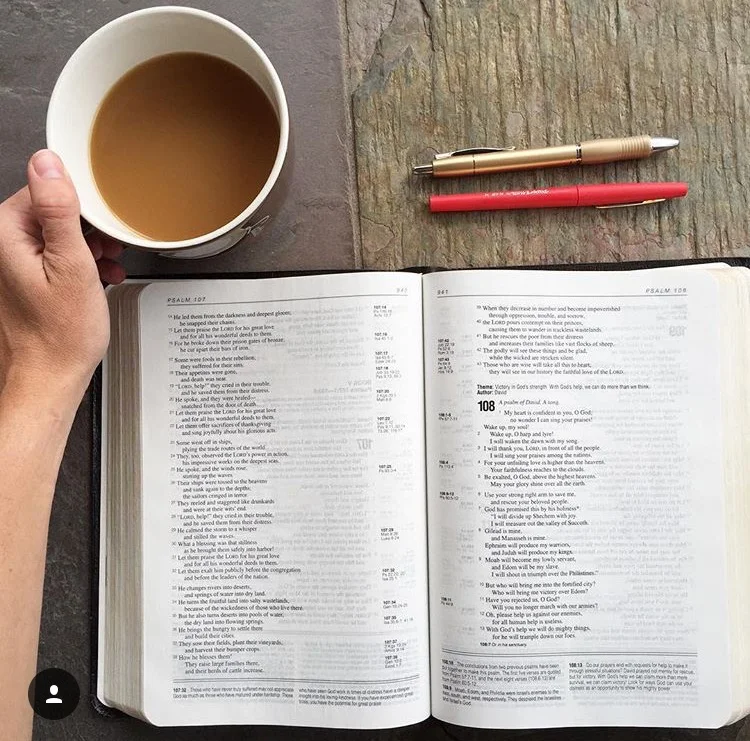 PSALM 107
14 He led them from the darkness and deepest gloom;
he snapped their chains.
15 Let them praise the LORD for his great love
and for all his wonderful deeds to them.
16 For he broke down their prison gates of bronze;
he cut apart their bars of iron.
17 Some were fools in their rebellion;
they suffered for their sins.
18 Their appetites were gone,
and death was near.
19 "LORD, help!" they cried in their trouble,
and he saved them from their distress.
20 He spoke, and they were healed—
snatched from the door of death.
21 Let them praise the LORD for his great love
and for all his wonderful deeds to them.
22 Let them offer sacrifices of thanksgiving
and sing joyfully about his glorious acts.
23 Some went off in ships,
plying the trade routes of the world.
24 They, too, observed the LORD's power in action,
his impressive works on the deepest seas.
25 He spoke, and the winds rose,
stirring up the waves.
26 Their ships were tossed to the heavens
and sank again to the depths;
the sailors cringed in terror.
27 They reeled and staggered like drunkards
and were at their wits' end.
28 "LORD, help!" they cried in their trouble,
and he saved them from their distress.
29 He calmed the storm to a whisper
and stilled the waves.
30 What a blessing was that stillness
as he brought them safely into harbor!
31 Let them praise the LORD for his great love
and for all his wonderful deeds to them.
32 Let them exalt him publicly before the congregation
and before the leaders of the nation.
33 He changes rivers into deserts,
and springs of water into dry land.
34 He turns the fruitful land into salty wastelands,
because of the wickedness of those who live there.
35 But he also turns deserts into pools of water,
the dry land into flowing springs.
36 He brings the hungry to settle there
and build their cities.
37 They sow their fields, plant their vineyards,
and harvest their bumper crops.
38 How he blesses them!
They raise large families there,
and their herds of cattle increase.
107:14
107:16
107:17
107:18
107:20
107:22
107:25
107:29
107:32
107:34
107:35
107:37
107:38
107:32 Those who have never truly suffered may not appreciate
God as much as those who have matured under hardship. Those
who have seen God work in times of distress have a deeper
insight into his loving-kindness. If you have experienced great
trials, you have the potential for great praise.
941
PSALM 108
39 When they decrease in number and become impoverished
through oppression, trouble, and sorrow,
40 the LORD pours contempt on their princes,
causing them to wander in trackless wastelands.
41 But he rescues the poor from their distress
and increases their families like vast flocks of sheep.
42 The godly will see these things and be glad,
while the wicked are stricken silent.
43 Those who are wise will take all this to heart;
they will see in our history the faithful love of the LORD.
Theme: Victory in God's strength. With God's help, we can do more than we think.
Author: David
108 A psalm of David. A song.
1 My heart is confident in you, O God;
no wonder I can sing your praises!
Wake up, my soul!
2 Wake up, O harp and lyre!
I will waken the dawn with my song.
3 I will thank you, LORD, in front of all the people.
I will sing your praises among the nations.
4 For your unfailing love is higher than the heavens.
Your faithfulness reaches to the clouds.
5 Be exalted, O God, above the highest heavens.
May your glory shine over all the earth.
6 Use your strong right arm to save me,
and rescue your beloved people.
7 God has promised this by his holiness*:
"I will divide up Shechem with joy.
I will measure out the valley of Succoth.
8 Gilead is mine,
and Manasseh is mine.
Ephraim will produce my warriors,
and Judah will produce my kings.
9 Moab will become my lowly servant,
and Edom will be my slave.
I will shout in triumph over the Philistines."
10 But who will bring me into the fortified city?
Who will bring me victory over Edom?
11 Have you rejected us, O God?
Will you no longer march with our armies?
12 Oh, please help us against our enemies,
for all human help is useless.
13 With God's help we will do mighty things,
for he will trample down our foes.
108:7 Or in his sanctuary.
107:42
107:43
108:1-5
108:4
108:6-13
108:11